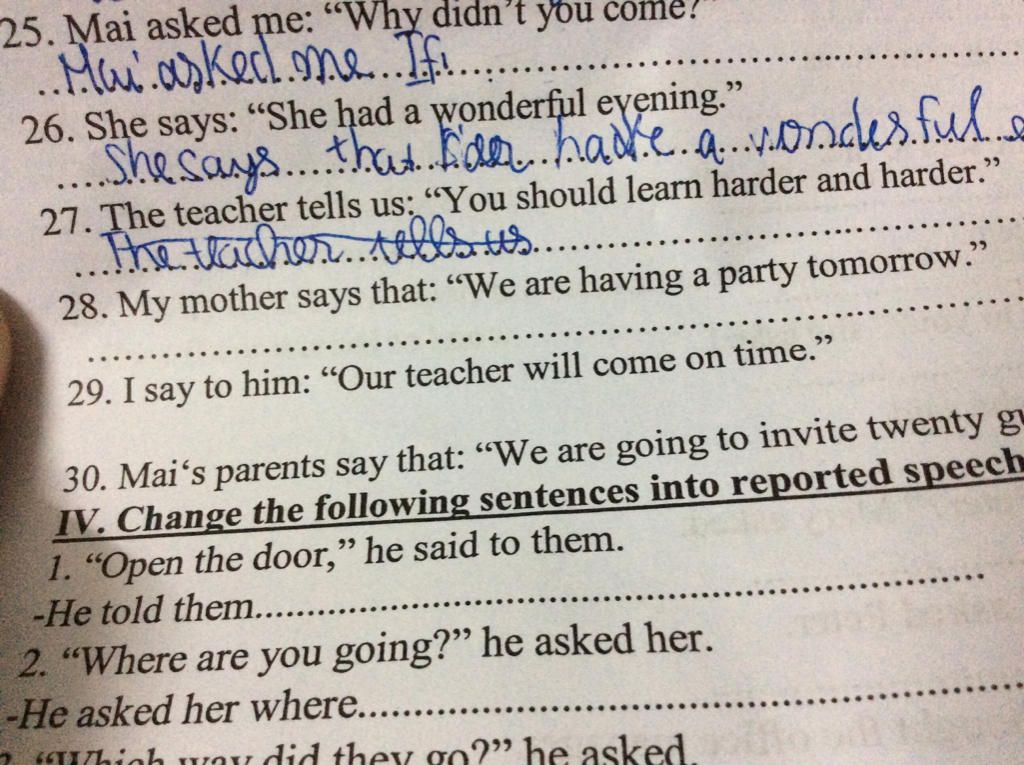 25. Mai asked me: “Why didn’t you come?”
Mai asked me If
26. She says: “She had a wonderful evening.”
She says that have a wondesful
27. The teacher tells us: “You should learn harder and harder.”
The teacher tells us
28. My mother says that: “We are having a party tomorrow.”
29. I say to him: “Our teacher will come on time.”
30. Mai‘s parents say that: “We are going to invite twenty
IV. Change the following sentences into reported speech
1. “Open the door,” he said to them.
-He told them
2. “Where are you going?” he asked her.
-He asked her where
“Which way did they go?” he asked.